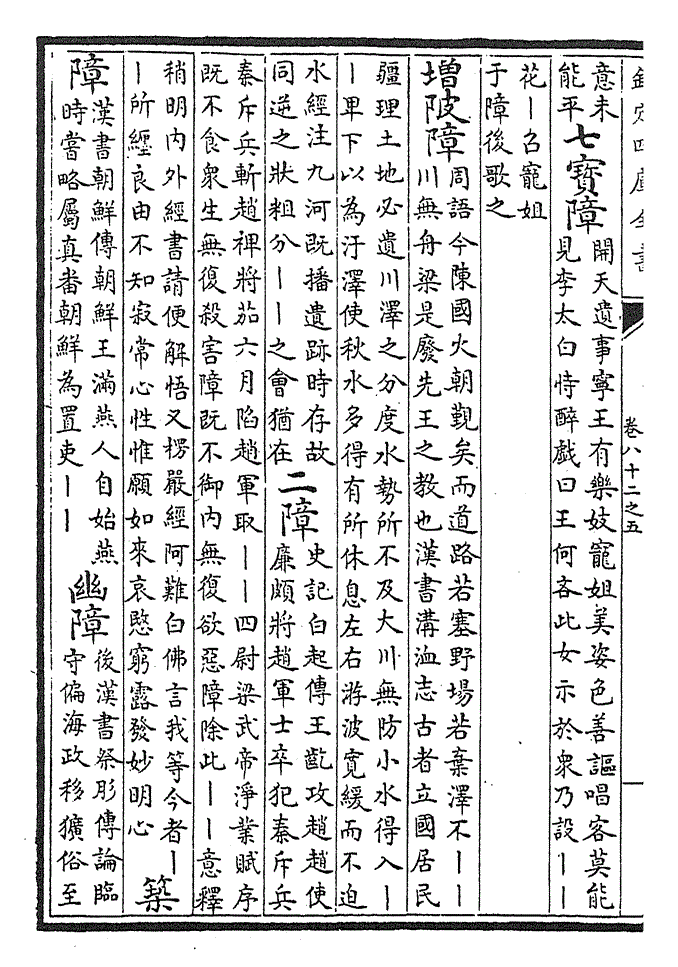 欽定四庫全書
卷八十二之五
意未
能平
七寶障
開天遺事寧王有樂妓寵姐美姿色善謳唱客莫能
見李太白恃醉戲曰王何吝此女示於衆乃設丨丨
花丨召寵姐
于障後歌之
增陂障
周語今陳國火朝覿矣而道路若塞野場若棄澤不丨丨
川無舟梁是廢先王之教也漢書溝洫志古者立國居民
疆理土地必遺川澤之分度水勢所不及大川無防小水得入丨
丨卑下以為汙澤使秋水多得有所休息左右游波寬緩而不迫
水經注九河既播遺跡時存故
同逆之狀粗分丨丨之會猶在
二障
史記白起傳王齕攻趙趙使
廉頗將趙軍士卒犯秦斥兵
秦斥兵斬趙裨將茄六月陷趙軍取丨丨四尉梁武帝淨業賦序
既不食衆生無復殺害障既不御内無復欲惡障除此丨丨意釋
稍明内外經書請便解悟又楞嚴經阿難白佛言我等今者丨
丨所經良由不知寂常心性惟願如來哀愍窮露發妙明心
築
障
漢書朝鮮傳朝鮮王滿燕人自始燕
時嘗略屬真番朝鮮為置吏丨丨
幽障
後漢書祭肜傳論臨
守偏海政移獷俗至